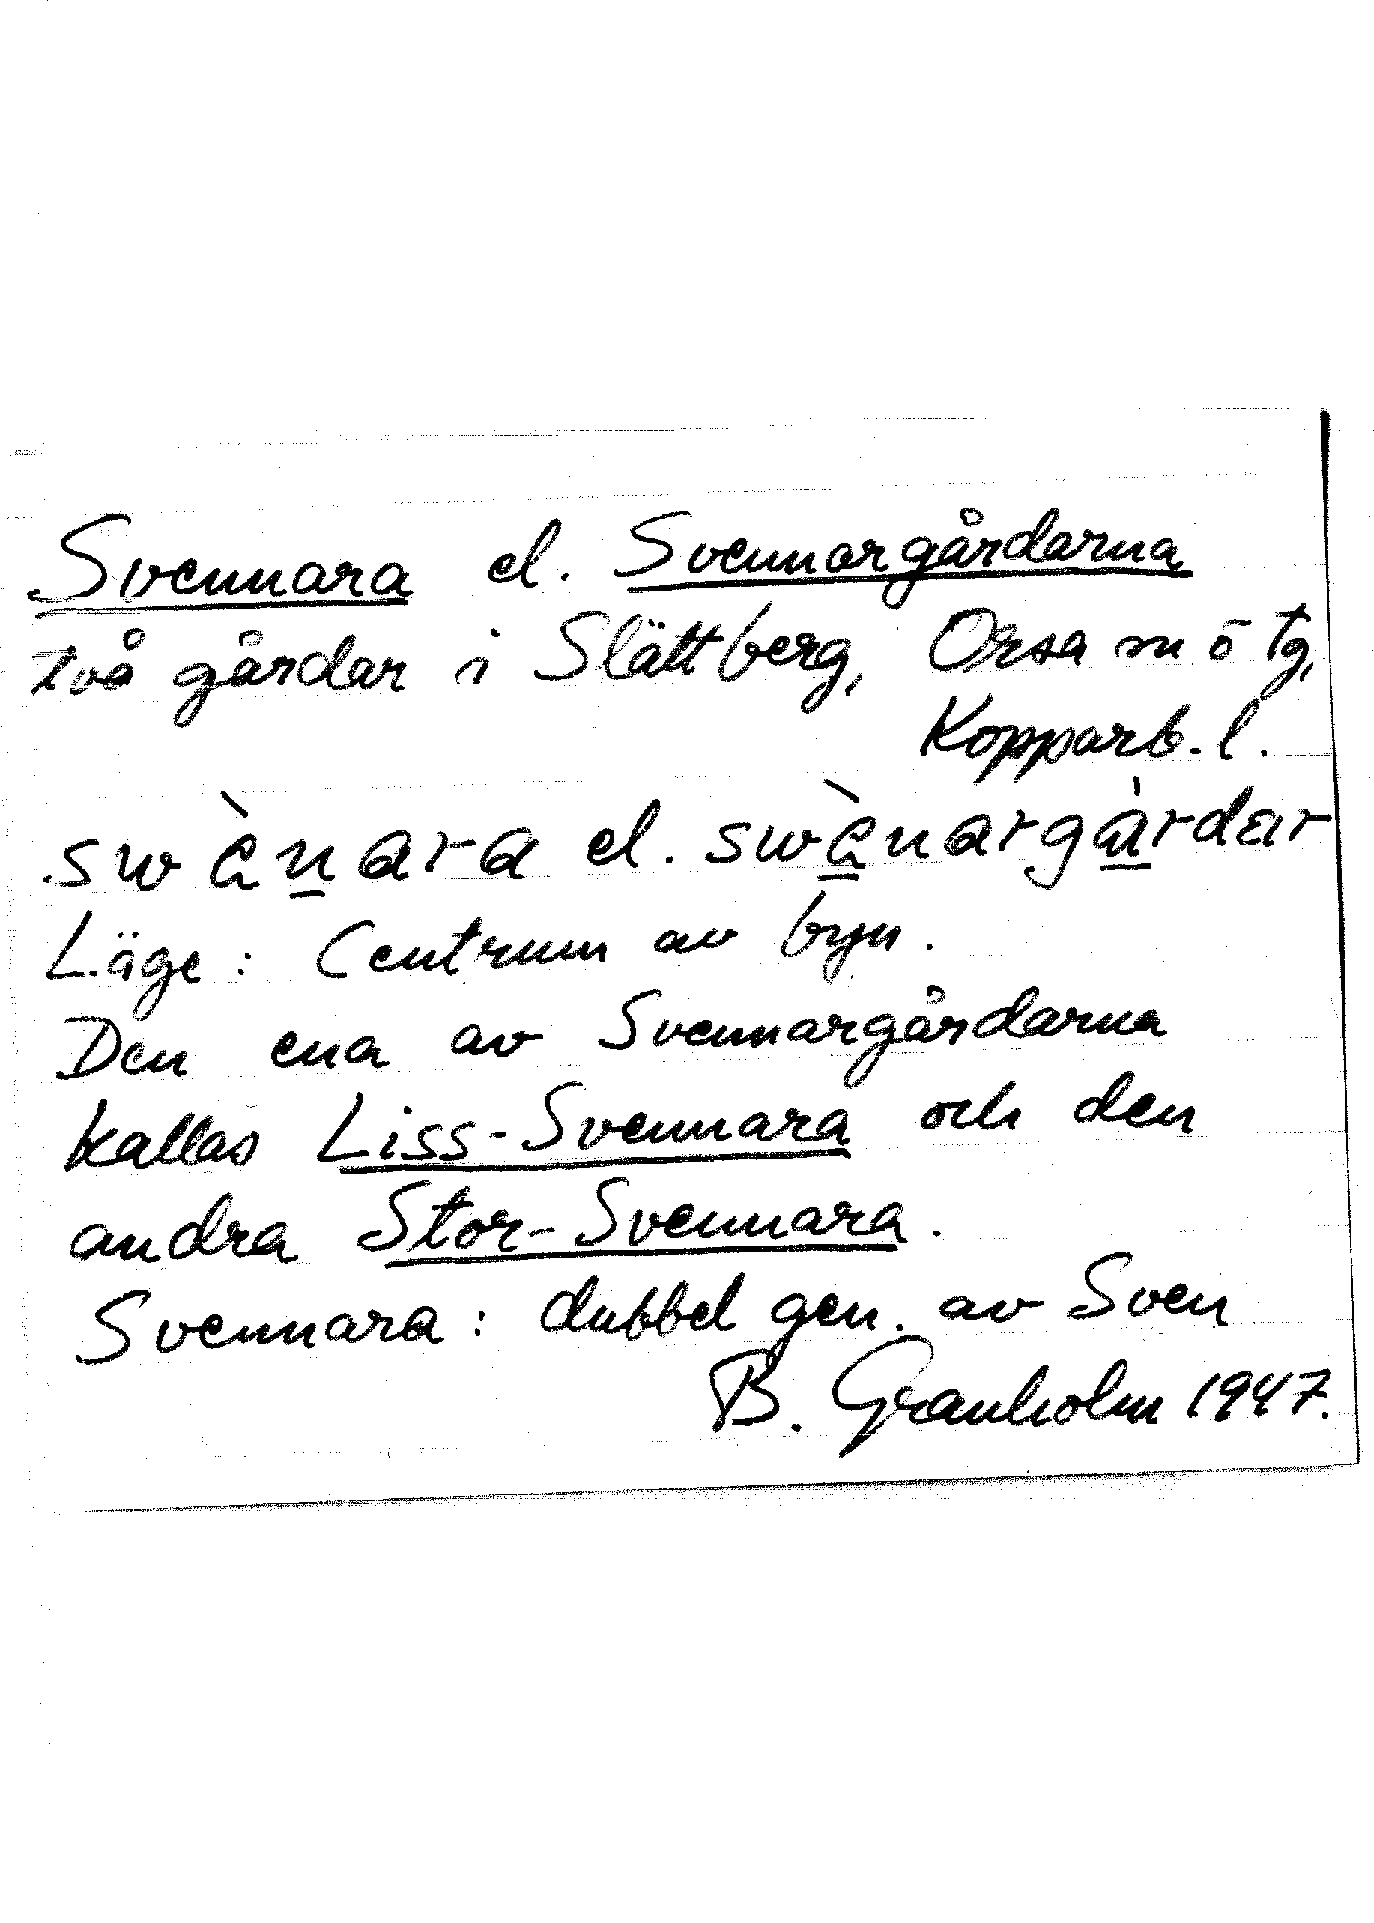 Svennara el. Svennargårdarna
två gårdar i Slättberg, Orsa sn ö tg,
Kopparb. l.
swä̀n̲ara el. swä̲̀nargà̲rdar
Läge: Centrum av byn.
Den ena av Svennargårdarna
kallas Liss-Svennara och den
andra Stor-Svennara.
Svennara: dubbel gen. av Sven
B. Granholm 1947.